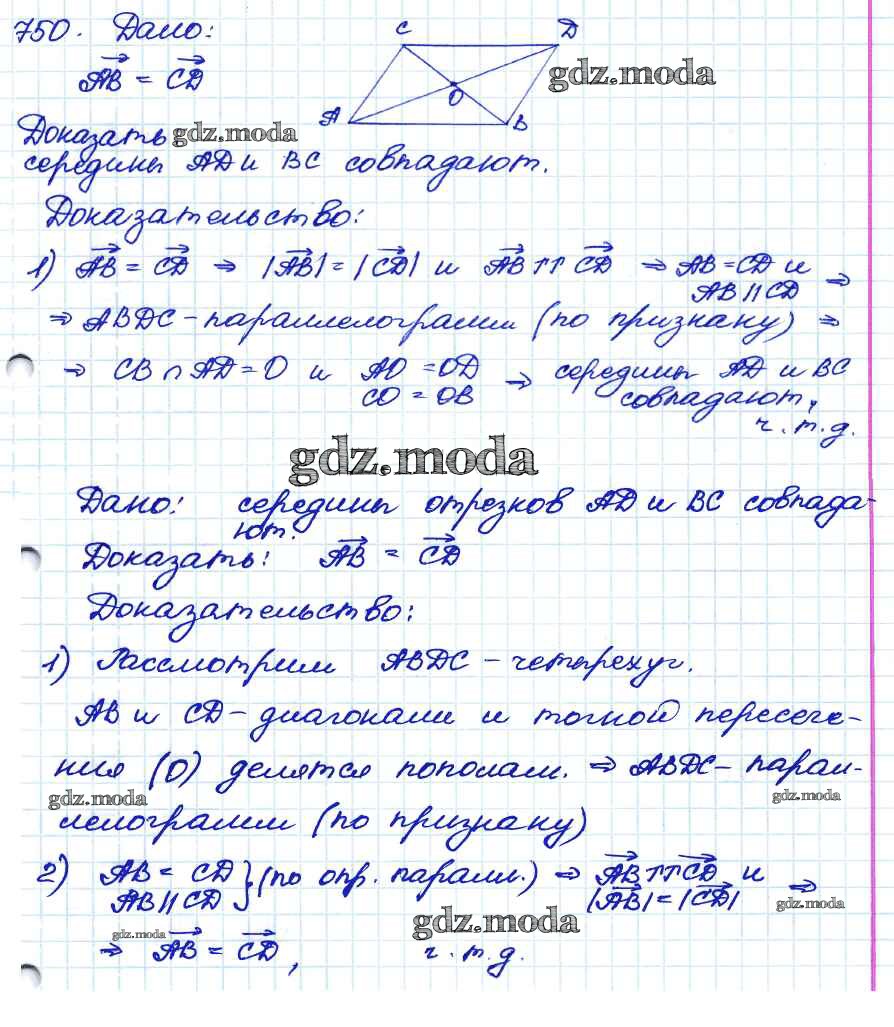 750. Дано:
C D
AB = CD
gdz.moda
O
A B
Доказать gdz.moda
середины AD и BC совпадают.
Доказательство:
1) AB = CD ⇒ |AB| = |CD| и AB ↑↑ CD ⇒ AB = CD и
AB || CD ⇒
⇒ ABDC - параллелограмм (по признаку) ⇒
⇒ CB ∩ AD = O и AO = OD
CO = OB ⇒ середины AD и BC
совпадают,
ч.т.д.
gdz.moda
Дано: середины отрезков AD и BC совпада-
ют.
Доказать: AB = CD
Доказательство:
1) Рассмотрим ABDC - четырехуг.
AB и CD - диагонали и точкой пересече-
ния (O) делятся пополам. ⇒ ABDC - парал-
gdz.moda gdz.moda
лелограмм (по признаку)
2) AB = CD
AB || CD } (по опр. паралл.) ⇒ AB ↑↑ CD и
|AB| = |CD| ⇒
gdz.moda
gdz.moda
gdz.moda
⇒ AB = CD, ч.т.д.